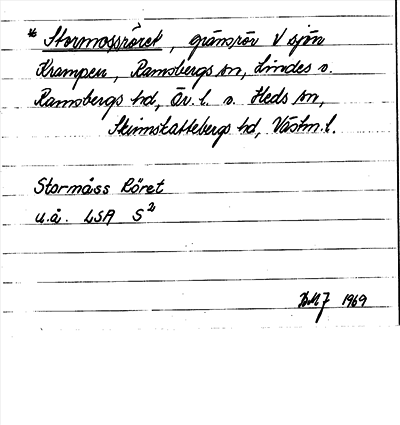 * Stormossröret, gränsrör V sjön
Krampen, Ramsbergs sn, Lindes o.
Ramsbergs hd, Ör. l. o. Heds sn,
Skinnskattebergs hd, Västm. l.
Stormåss Röret
u.å. LSA S2
1969